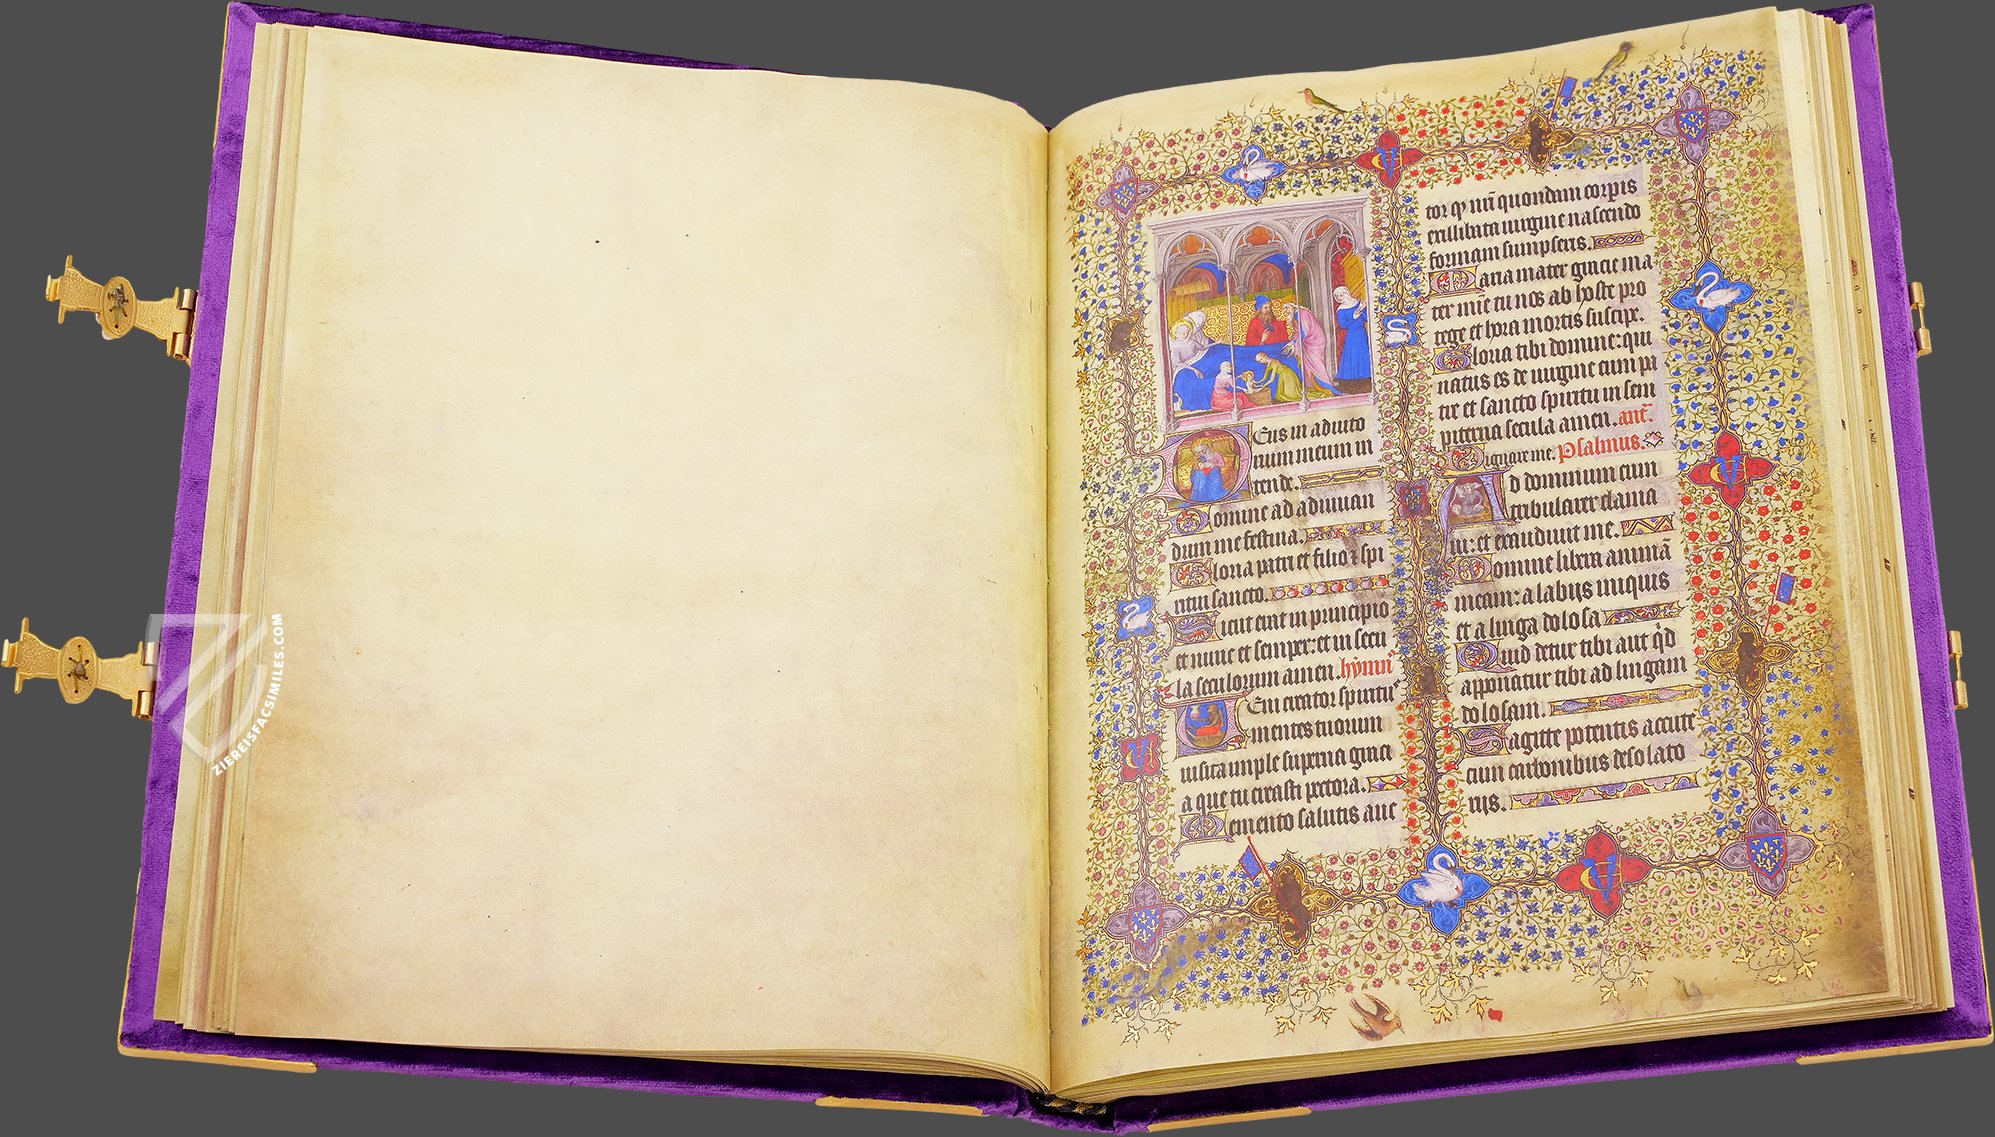 Eus in adiuto
rium meum in
tende.
Domine ad adiuuan
dum me festina.
Gloria patri et filio et spi
ritui sancto.
Sicut erat in principio
et nunc et semper: et in secu
la seculorum amen. hymn
Eni creator spiritus
mentes tuorum
uisita imple superna graci
a que tu creasti pectora.
Memento salutis auc
tor qꝫ nr̄i quondam corpis
ex illibata uirgine nascendo
formam sumpseris.
Maria mater gracie ma
ter mīe tu nos ab hoste pro
tege et hora mortis suscipe.
Gloria tibi domine: qui
natus es de uirgine cum pa
tre et sancto spiritu in sem
piterna secula amen. ant̄.
Benigne me. Psalmus.
Ad dominum cum
tribularer clama
ui: et exaudiuit me.
Domine libera animā
meam: a labijs iniquis
et a lingua dolosa
Quid detur tibi aut qͥd
apponatur tibi ad linguam
dolosam.
Sagitte potentis accute
cum carbonibus desolato
rijs.
ZIEREISFACSIMILES.COM